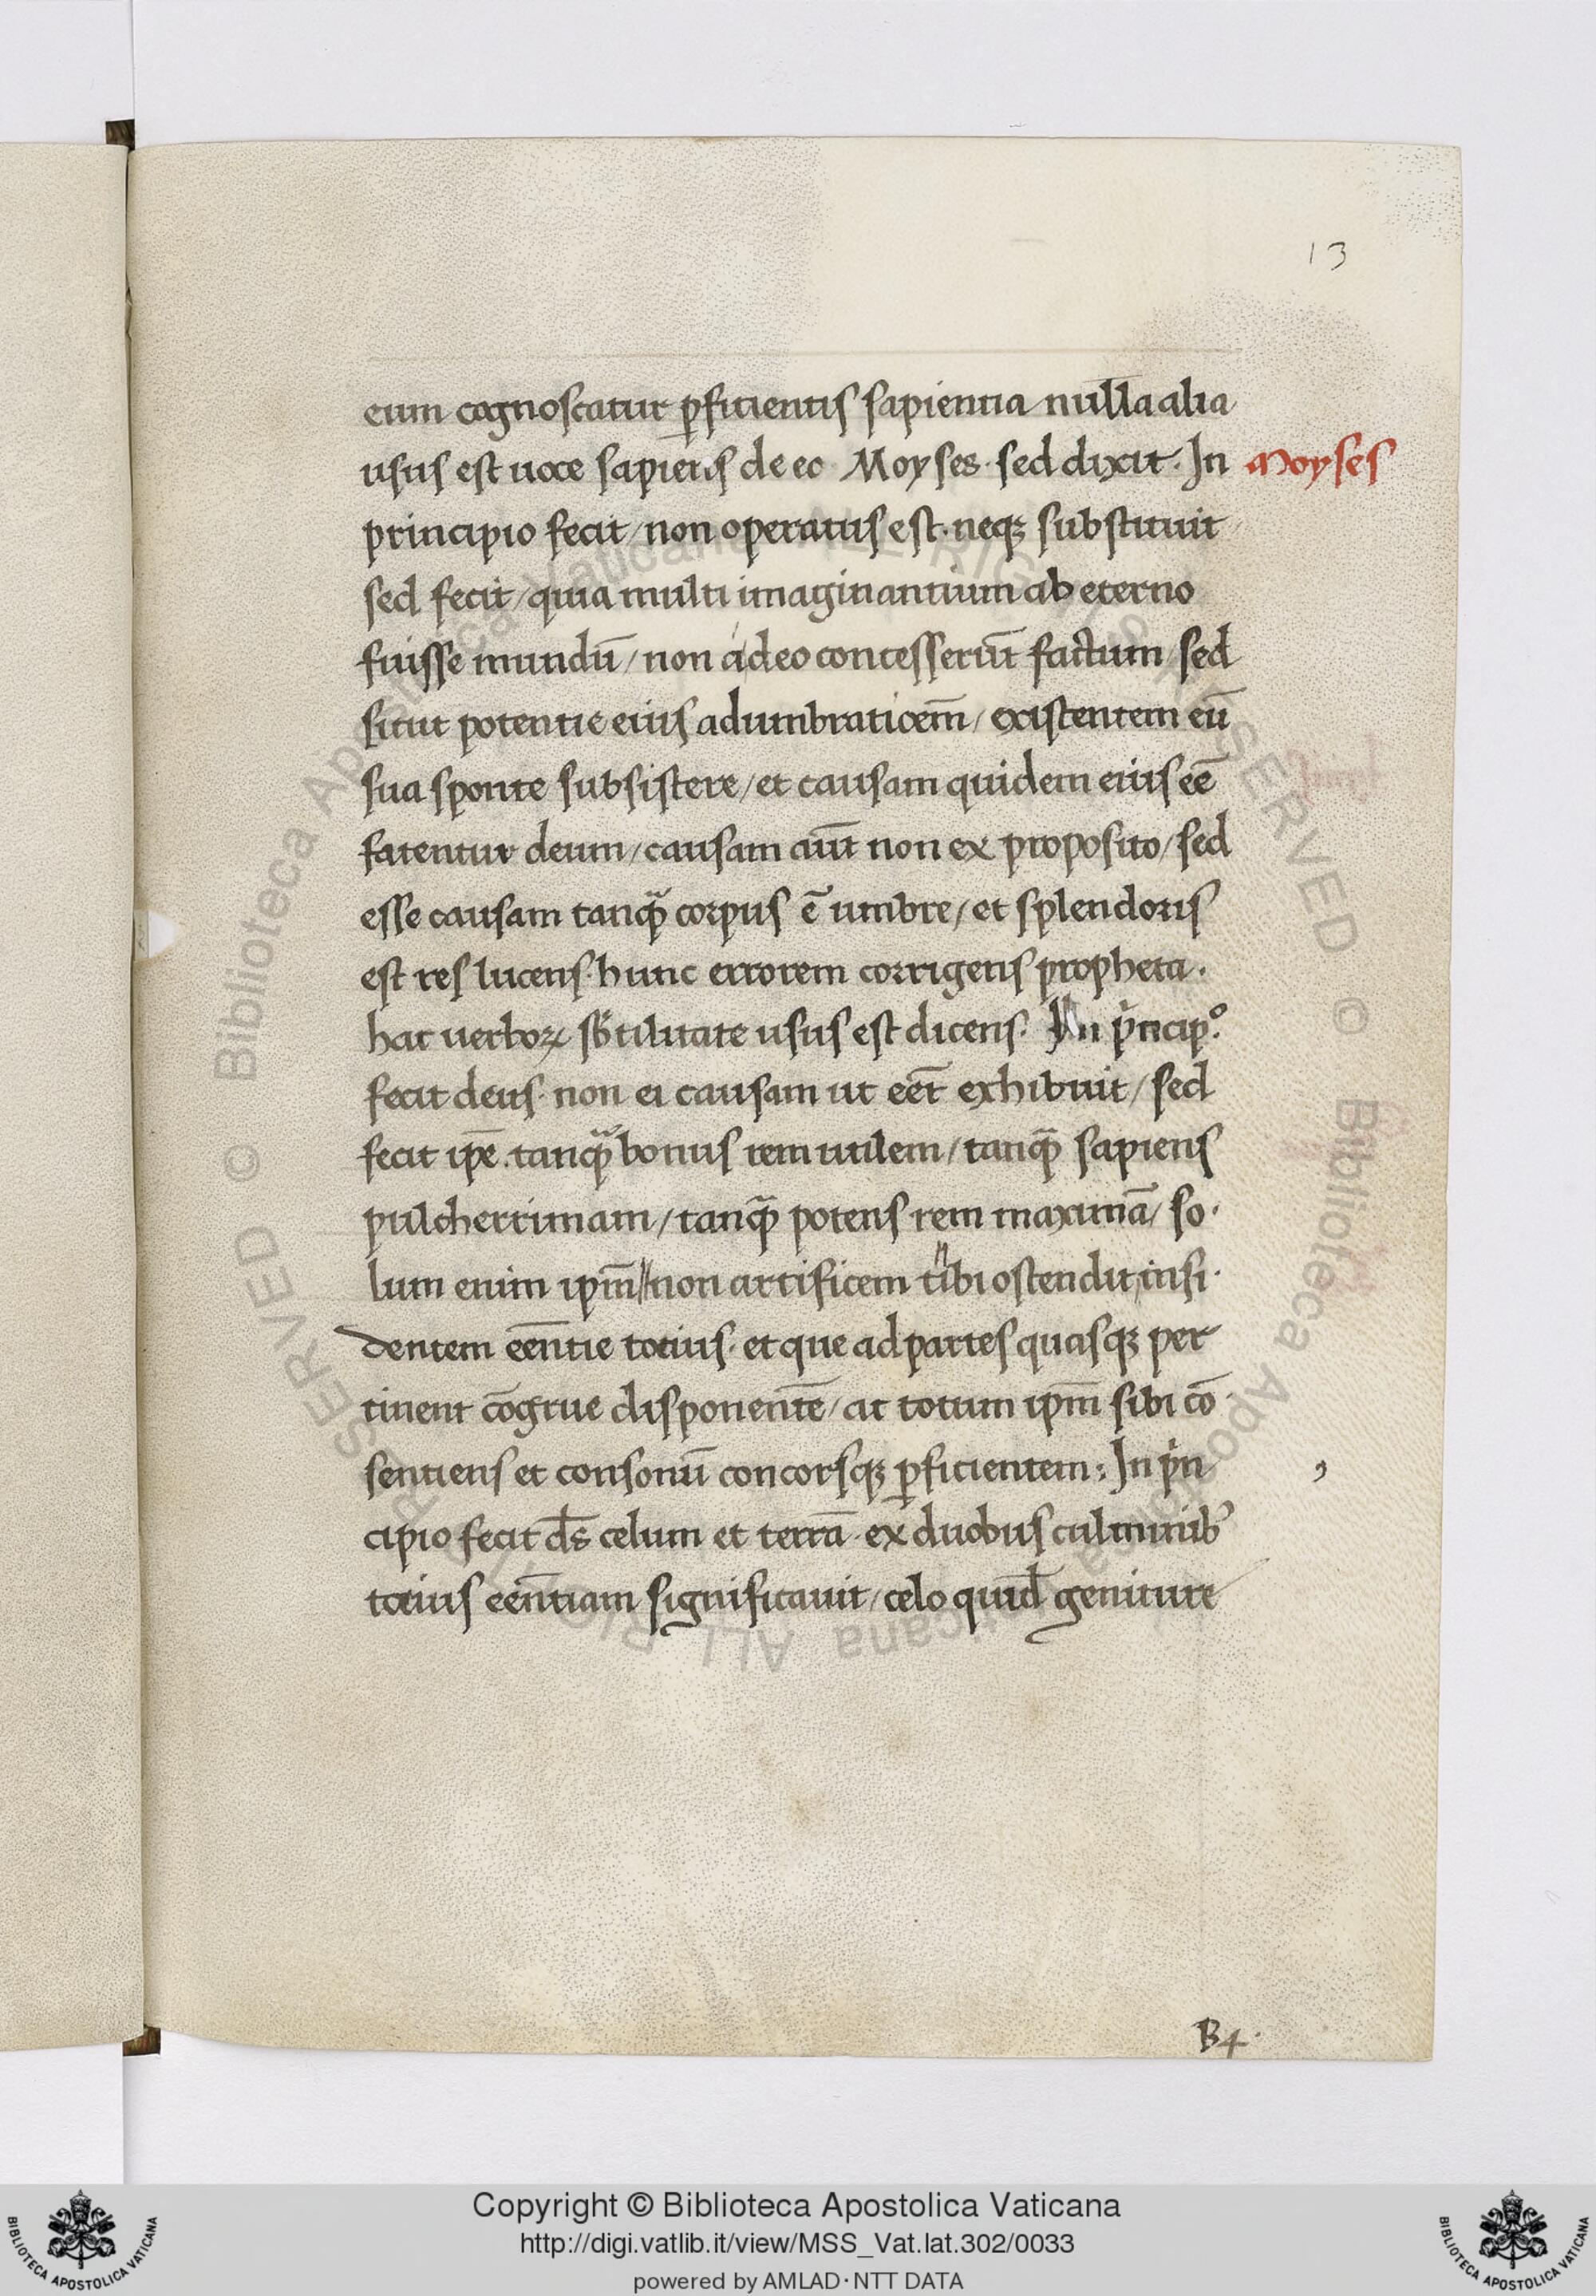 13
eum cognoscatur ꝑficientis sapientia nulla alia
usus est uoce sapiens de eo Moyses· sed dixit· In
Moyses
principio fecit/ non operatus est· neqꝫ substituit
sed fecit/ quia multi imaginantium ab eterno
fuisse mundū/ non a deo concesserūt factum/ sed
sicut potentie eius adumbraticem̄/ existentem eū
sua sponte subsistere/ et causam quidem eius eē
fatentur deum/ causam aūt non ex proposito/ sed
esse causam tanqꝫ corpus ē umbre/ et splendoris
est res lucens· hunc errorem corrigens propheta·
hac uerboꝝ sb̄tilitate usus est dicens· In pⁱncipº·
fecit deus· non ei causam ut eēt exhibuit/ sed
fecit ip̄e· tanqᷓ bonus rem utilem/ tanqᷓ sapiens
pulcherrimam/ tanqᷓ potens rem maximā/ so·
lum enim ipm̄ non artificem tibi ostendit/ insi·
dentem eēntie totius· et que ad partes quasqꝫ per
tinent cōgrue disponentē/ ac totum ipm̄ sibi cō·
sentiens et consonū concorsqꝫ ꝑficientem: In pⁱn
cipio fecit ds̄ celum et terrā· ex duobus culminibꝰ
totius eēntiam significauit/ celo quid̄ geniture
B4·
Copyright © Biblioteca Apostolica Vaticana
http://digi.vatlib.it/view/MSS_Vat.lat.302/0033
powered by AMLAD·NTT DATA
BIBLIOTECA APOSTOLICA VATICANA
BIBLIOTECA APOSTOLICA VATICANA